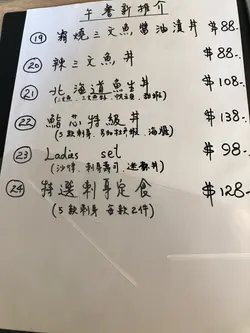 午餐新推介
⑲ 燒三文魚醬油漬丼 $88.-
⑳ 辣三文魚丼 $88.-
㉑ 北海道魚生丼 $108.-
㉒ 鮨芯特級丼 $138.-
(5款刺身、海膽)
23 Ladies set $98.-
(沙律、刺身壽司、迷你丼)
24 特選刺身定食 $128.-
(5款刺身 每款2件)